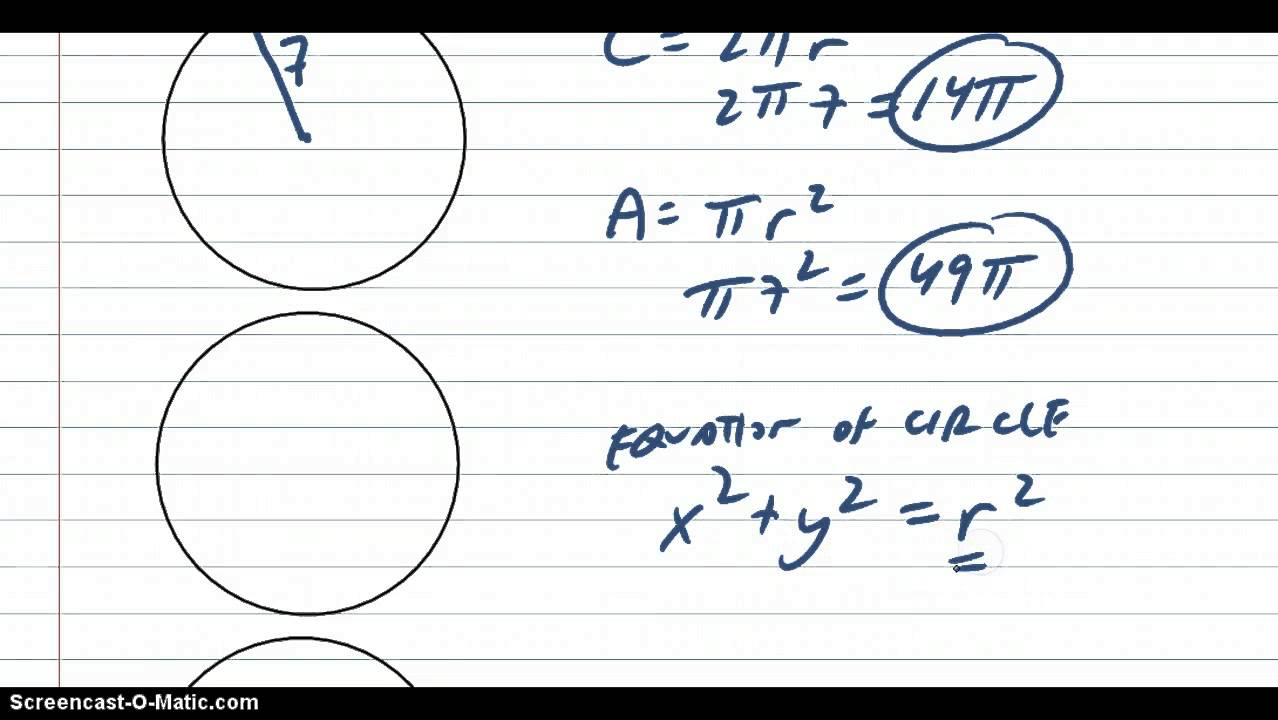 7
C = 2πr
2π7 = 14π
A = πr²
π7² = 49π
EQUATION OF CIRCLE
x² + y² = r²
=
Screencast-O-Matic.com